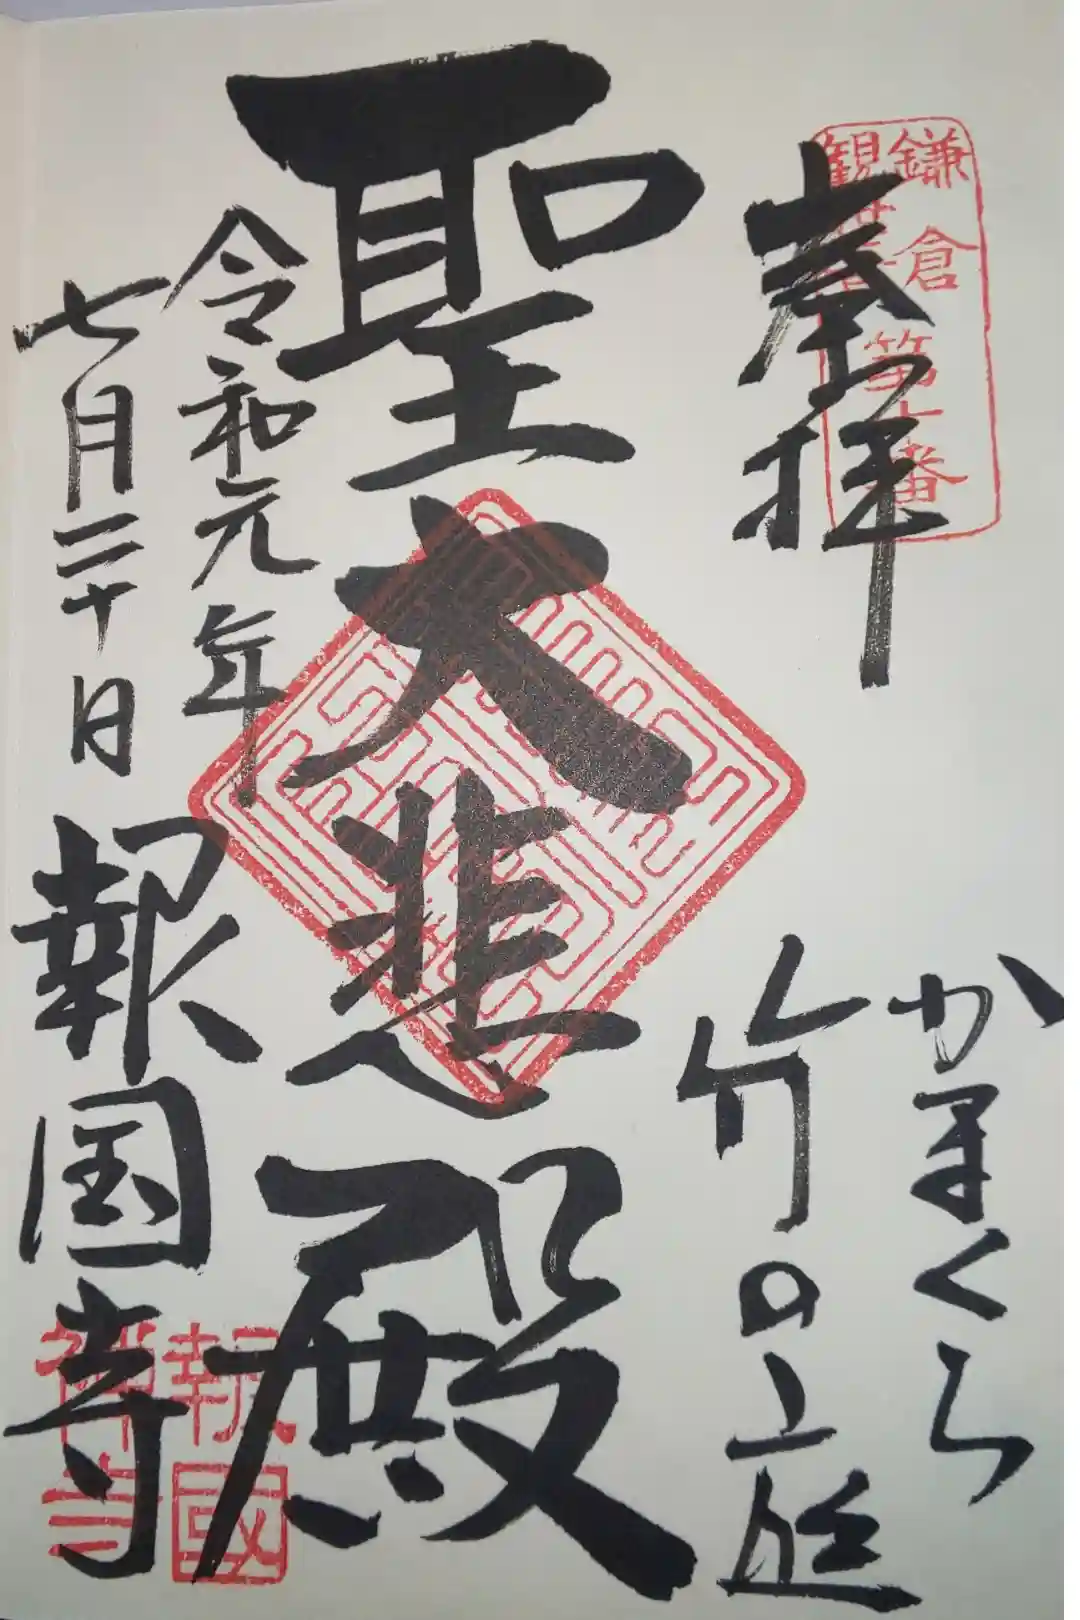 鎌倉 第十番
観世音
奉拝
かまくら
竹の庭
聖大悲殿
令和元年
七月二十日
報国寺
報國
禅寺